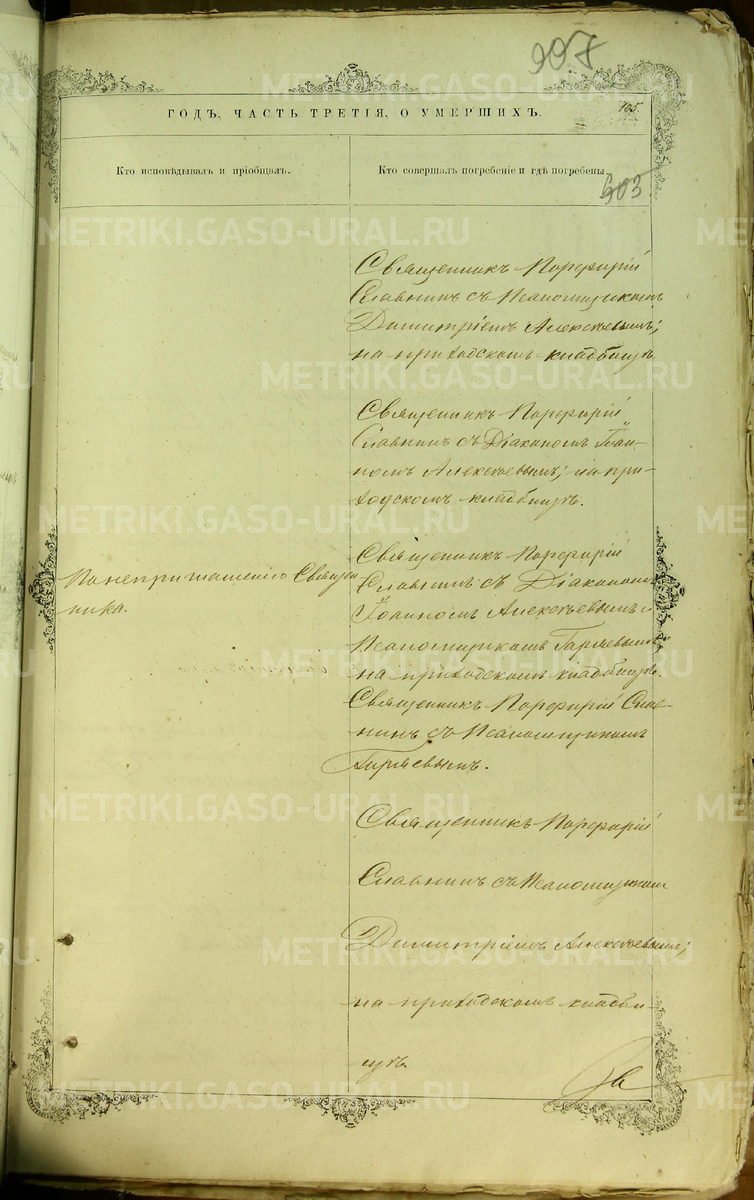 997
ГОДЪ, ЧАСТЬ ТРЕТІЯ, О УМЕРШИХЪ.
105
Кто исповѣдывалъ и пріобщалъ.
Кто совершалъ погребеніе и гдѣ погребены.
603
Священникъ Порфирій
Славнинъ съ Псаломщикомъ
Димитріемъ Алексѣевымъ;
на приходскомъ кладбищѣ
Священникъ Порфирій
Славнинъ съ Діакономъ Іоан-
номъ Алексѣевымъ; на при-
ходскомъ кладбищѣ.
По неприглашенію Священ
ника.
Священникъ Порфирій
Славнинъ съ Діакономъ
Іоанномъ Алексѣевымъ и
Псаломщикомъ Гаряевымъ,
на приходскомъ кладбищѣ.
Священникъ Порфирій Слав-
нинъ съ Псаломщикомъ
Гаряевымъ.
Священникъ Порфирій
Славнинъ съ Псаломщикомъ
Димитріемъ Алексѣевымъ;
на приходскомъ кладби-
щѣ.
METRIKI.GASO-URAL.RU